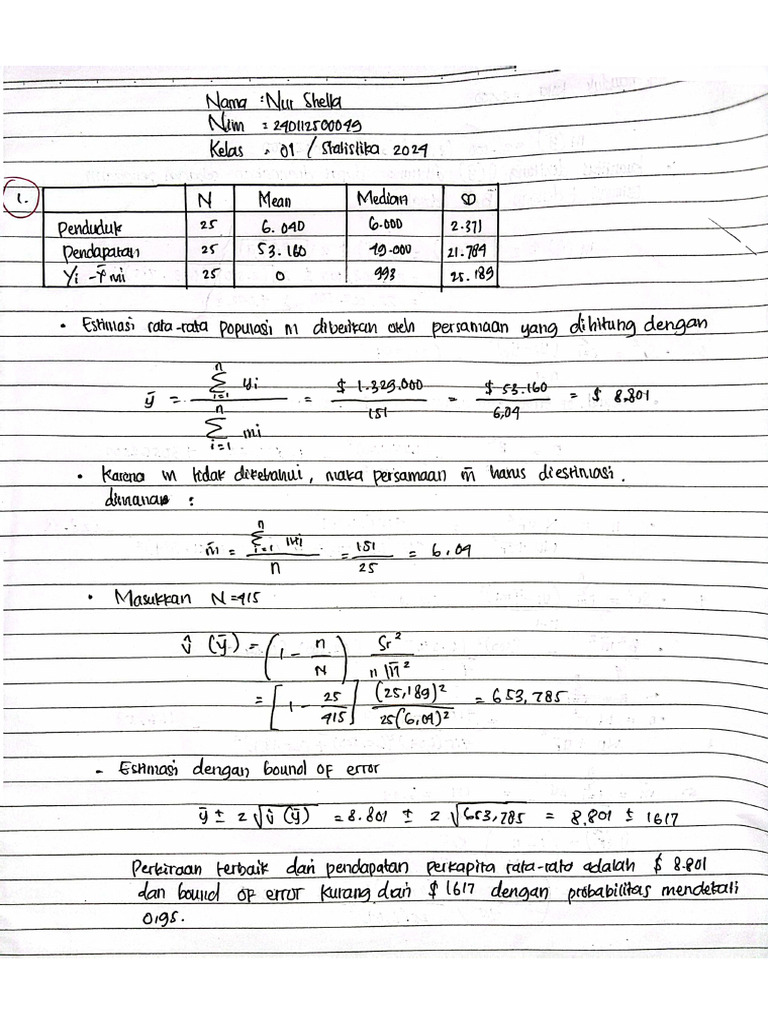 Nama : Nur Shella
Nim = 240112500049
Kelas : 01 / Statistika 2024
1.
N Mean Median SD
Penduduk 25 6.040 6.000 2.371
Pendapatan 25 53.160 49.000 21.784
Yi - Ȳ mi 25 0 993 25.189
• Estimasi rata-rata populasi M diberikan oleh persamaan yang dihitung dengan
ȳ = Σ_{i=1}^{n} yi / Σ_{i=1}^{n} mi = $ 1.329.000 / 151 = $ 53.160 / 6,04 = $ 8.801
• Karena M tidak diketahui, maka persamaan m̄ harus diestimasi.
dimana :
m̄ = Σ_{i=1}^{n} mi / n = 151 / 25 = 6,04
• Masukkan N = 415
v̂ (ȳ) = (1 - n/N) Sr² / n M̄²
= [1 - 25/415] (25,189)² / 25(6,04)² = 653,785
- Estimasi dengan bound of error
ȳ ± 2 √v̂ (ȳ) = 8.801 ± 2 √653,785 = 8.801 ± 1617
Perkiraan terbaik dari pendapatan perkapita rata-rata adalah $ 8.801
dan bound of error kurang dari $ 1617 dengan probabilitas mendekati
0,95.